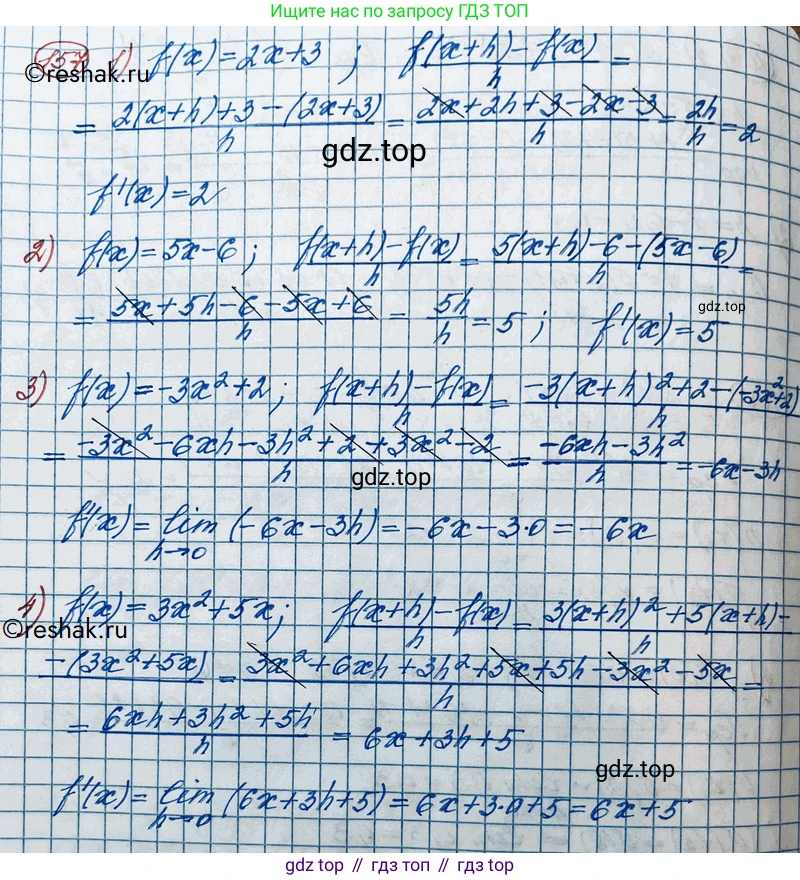 Ищите нас по запросу ГДЗ ТОП
1) f(x)=2x+3 ; f(x+h)-f(x)/h =
©reshak.ru
= 2(x+h)+3-(2x+3)/h = 2x+2h+3-2x-3/h = 2h/h = 2
gdz.top
f'(x)=2
2) f(x)=5x-6; f(x+h)-f(x)/h = 5(x+h)-6-(5x-6)/h =
gdz.top
= 5x+5h-6-5x+6/h = 5h/h = 5; f'(x)=5
3) f(x)=-3x²+2; f(x+h)-f(x)/h = -3(x+h)²+2-(-3x²+2)/h
= -3x²-6xh-3h²+2+3x²-2/h = -6xh-3h²/h = -6x-3h
gdz.top
f'(x)= lim h→0 (-6x-3h)=-6x-3·0=-6x
4) f(x)=3x²+5x; f(x+h)-f(x)/h = 3(x+h)²+5(x+h)-
©reshak.ru
-(3x²+5x)/h = 3x²+6xh+3h²+5x+5h-3x²-5x/h =
gdz.top
= 6xh+3h²+5h/h = 6x+3h+5
gdz.top
f'(x)= lim h→0 (6x+3h+5)=6x+3·0+5=6x+5
gdz top // гдз топ // gdz.top